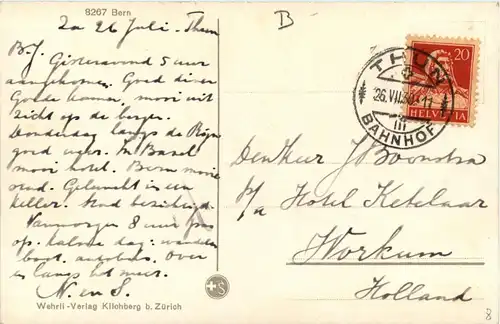 8267 Bern
B
Za 26 Juli - Thun
B.J.
Gisteravond 5 uur
aangekomen. Goed diner
Goede kamer, mooi uit
zicht op de bergen.
Donderdag langs de Rijn
goed weer. In Basel
mooi hotel. Bern mooie
stad. Geluncht in een
keller. Stad bezichtigd.
Vanmorgen 8 uur
op. kalme dag: wandelen
boot, autobus. Over
langs het meer.
N. en S.
Wehrli-Verlag Kilchberg b. Zürich
S
THUN
26.VII.30.-11
III
BAHNHOF
20
HELVETIA
Den Heer J. Boonstra
p/a Hotel Ketelaar
Workum
Holland
8